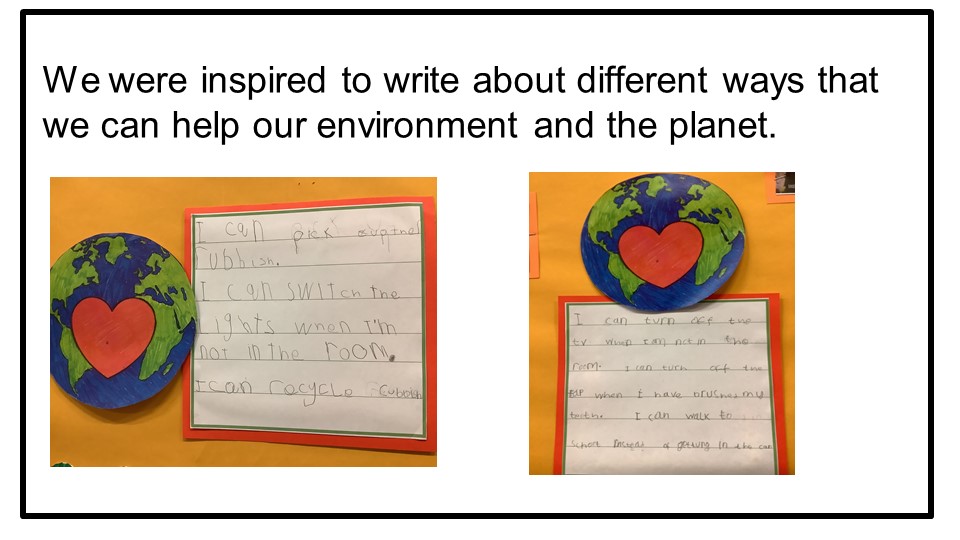 We were inspired to write about different ways that
we can help our environment and the planet.
I can pick up the
rubbish.
I can switch the
lights when I'm
not in the room.
I can recycle
I can turn off the
tv when I'm not in the
room. I can turn off the
when I have brushes my
I can walk to
of getting in the car